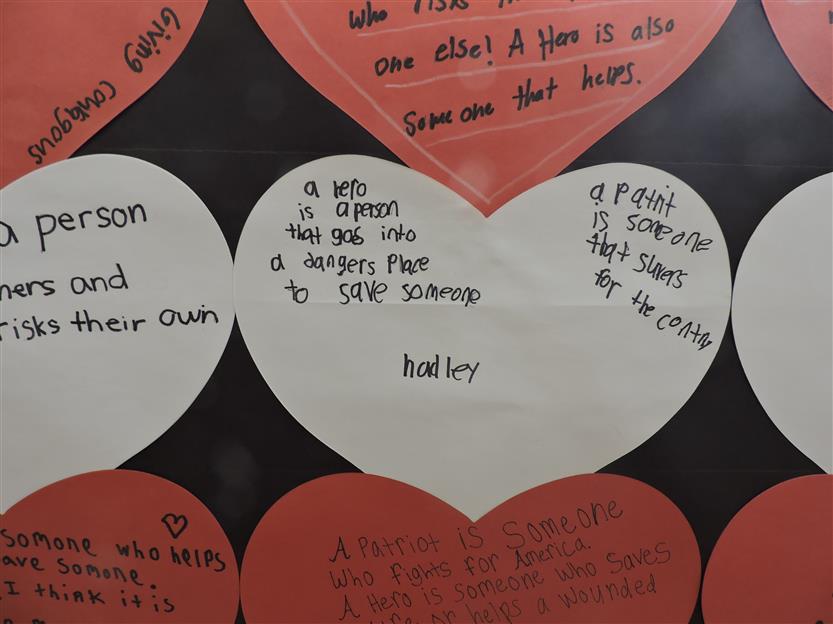 Giving
Contagous
who risks
one else! A Hero is also
Someone that helps.
a person
hers and
risks their own
a rero
is a person
that gos into
a dangers Place
to save someone
hadley
a patrit
is someone
that survers
for the contry
somone who helps
ave somone.
I think it is
A Patriot is Someone
Who Fights for America.
A Hero is someone who Saves
or helps a wounded